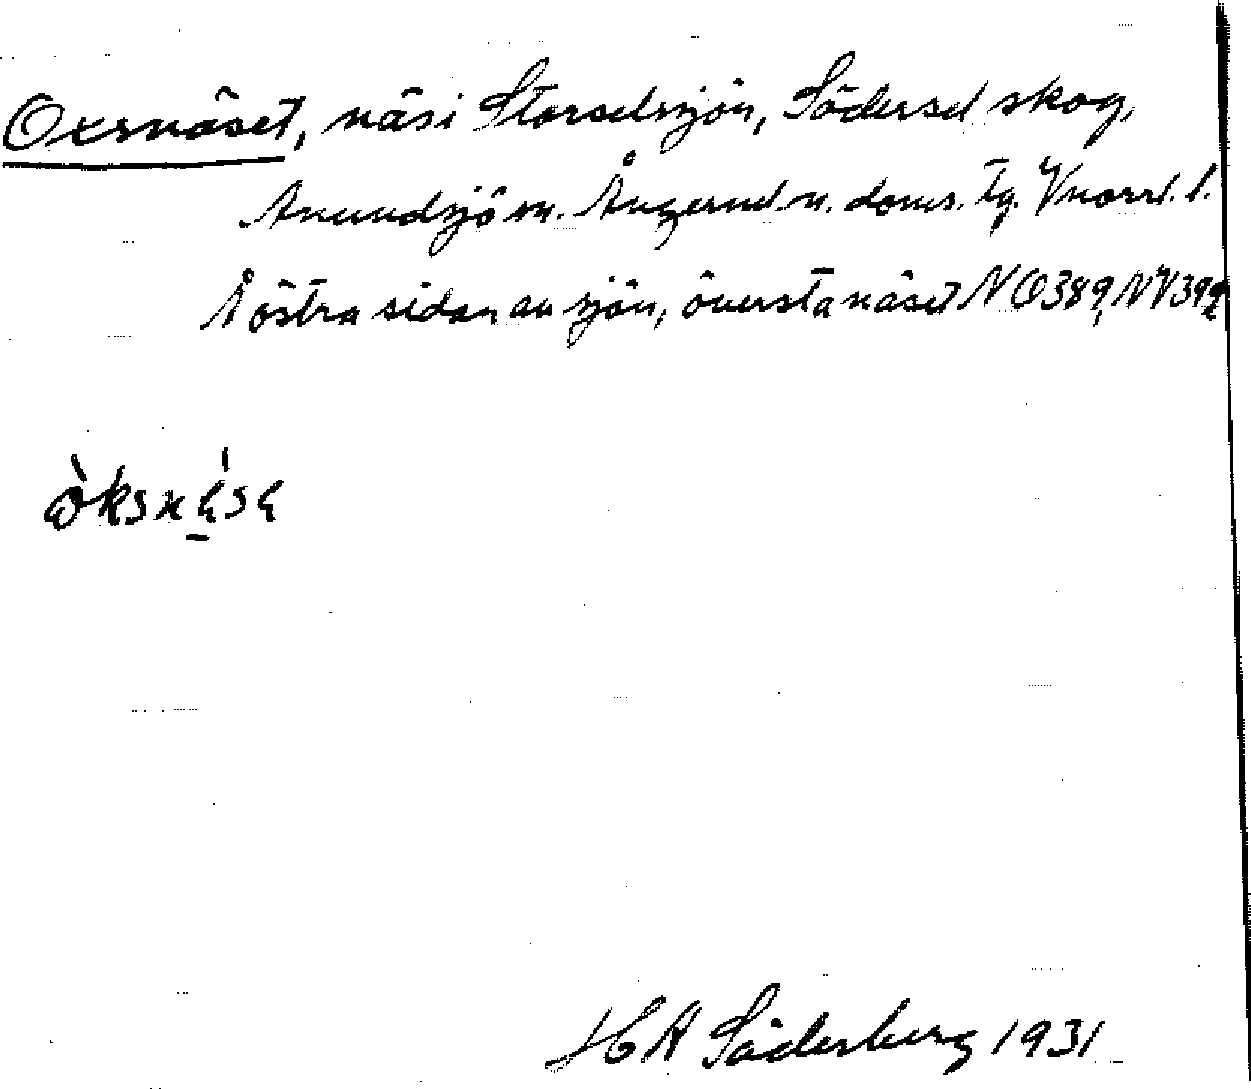 Oxsnäset, näs i Storselsjön, Södersel skog,
Anundsjö sn. Ångerml. n. doms. tg. Vnorrl. l.
Å östra sidan av sjön, översta näset NO389, NV392
H A Söderberg 1931